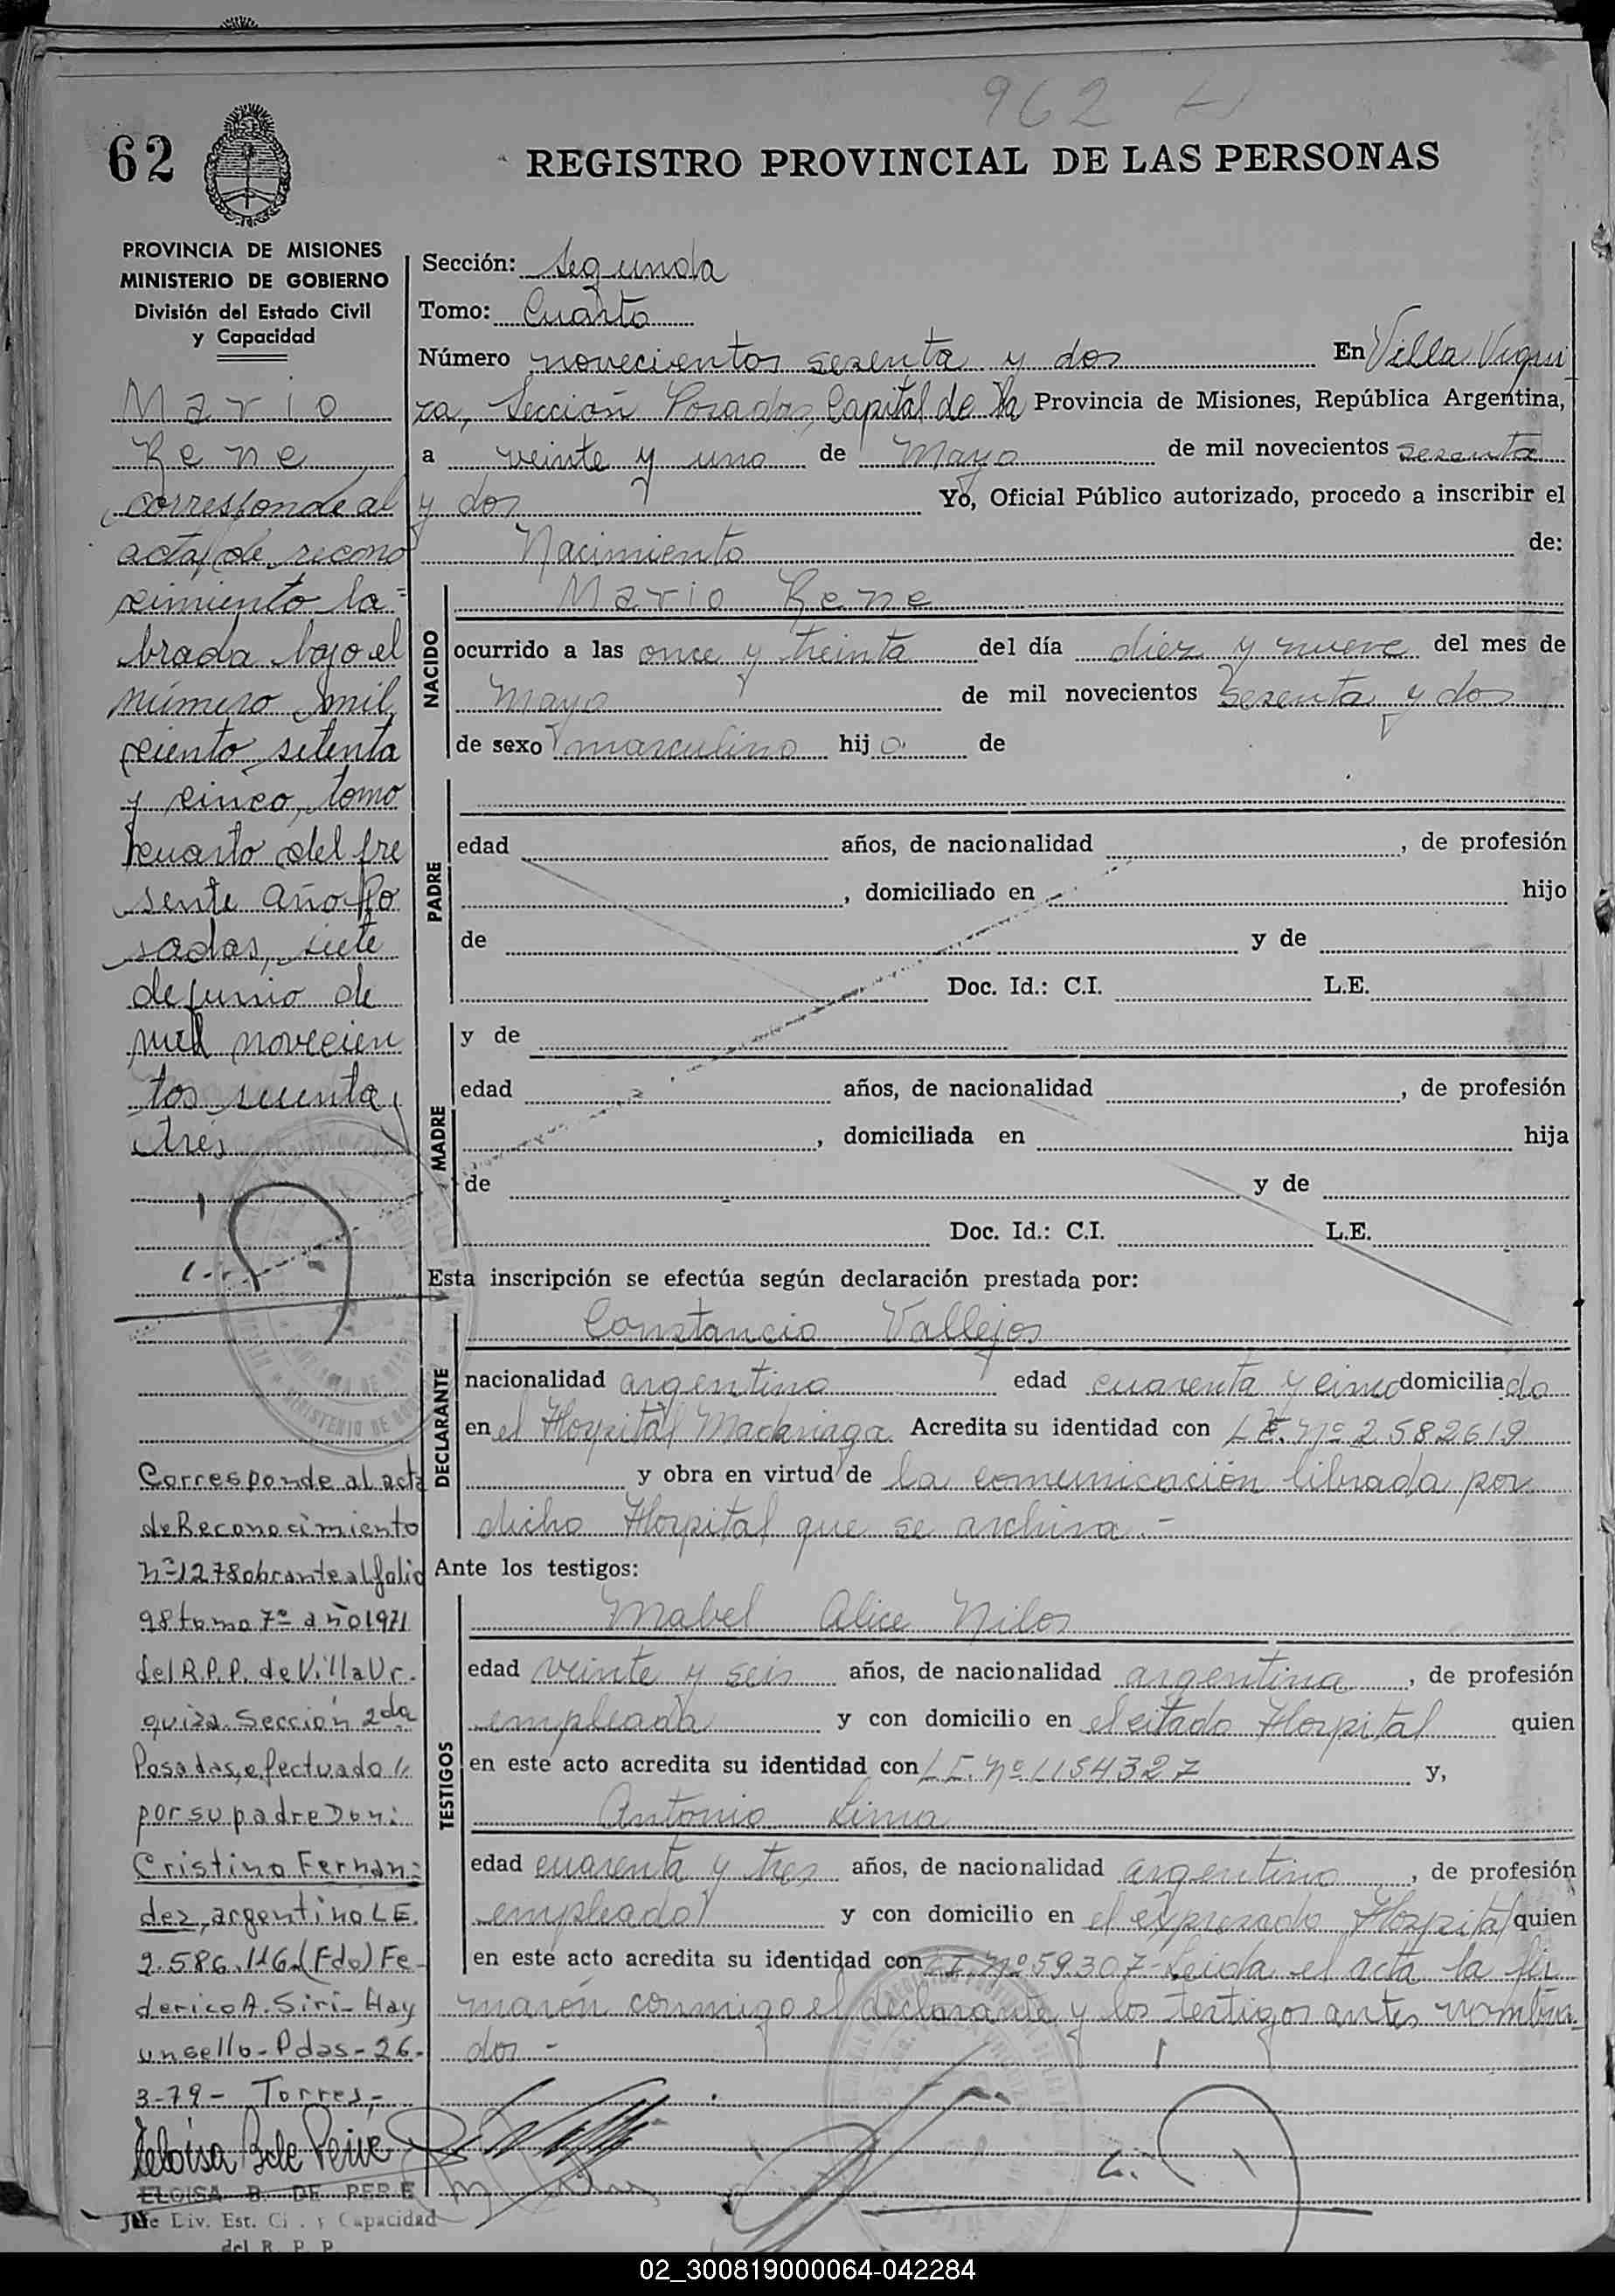 962
62
REGISTRO PROVINCIAL DE LAS PERSONAS
PROVINCIA DE MISIONES
MINISTERIO DE GOBIERNO
División del Estado Civil
y Capacidad
Mario
Rene
corresponde al
acta de recono
cimiento la=
brada bajo el
número mil
ciento setenta
y cinco, tomo
cuarto del pre
sente año Po
sadas, siete
de junio de
mil novecien
tos sesenta y
tres
Corresponde al acta
de Reconocimiento
nº 1278 obrante al folio
98 tomo 7º año 1971
del R.P.P. de Villa Ur-
quiza Sección 2da
Posadas, efectuado
por su padre Don:
Cristino Fernan=
dez, argentino L.E.
2.586.116 (Fdo) Fe-
derico A. Siri - Hay
un sello - Pdas - 26-
3-79 - Torres.-
ELOISA B. DE PERIE
Jefe Div. Est. Ci . y Capacidad
del R. P. P.
Sección: Segunda
Tomo: Cuarto
Número novecientos sesenta y dos En Villa Urqui
za, Sección Posadas, Capital de la Provincia de Misiones, República Argentina,
a veinte y uno de Mayo de mil novecientos sesenta
y dos Yo, Oficial Público autorizado, procedo a inscribir el
Nacimiento de:
NACIDO
Mario Rene
ocurrido a las once y treinta del día diez y nueve del mes de
Mayo de mil novecientos sesenta y dos
de sexo masculino hijo de
PADRE
edad años, de nacionalidad , de profesión
, domiciliado en hijo
de y de
Doc. Id.: C.I. L.E.
MADRE
y de
edad años, de nacionalidad , de profesión
, domiciliada en hija
de y de
Doc. Id.: C.I. L.E.
Esta inscripción se efectúa según declaración prestada por:
DECLARANTE
Constancio Vallejos
nacionalidad argentino edad cuarenta y cinco domiciliado
en el Hospital Madariaga. Acredita su identidad con L.E. Nº 2582619
y obra en virtud de la comunicación librada por
dicho Hospital que se archiva.-
Ante los testigos:
TESTIGOS
Mabel Alice Nilos
edad veinte y seis años, de nacionalidad argentina , de profesión
empleada y con domicilio en el citado Hospital quien
en este acto acredita su identidad con Nº 1154327 y,
Antonio Lima
edad cuarenta y tres años, de nacionalidad argentino , de profesión
empleado y con domicilio en el expresado Hospital quien
en este acto acredita su identidad con Nº 59.307- Leida el acta la fir
maron conmigo el declarante y los testigos antes nombra
dos -
02_300819000064-042284